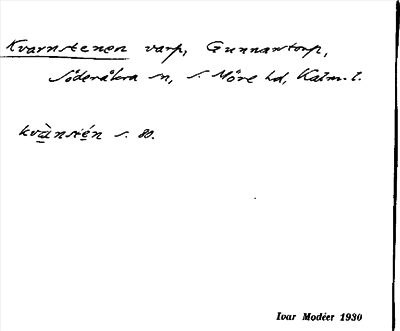 Kvarnstenen varp, Gunnarstorp,
Söderåkra sn, s. Möre hd, Kalm. l.
kvànstén s. 80.
Ivar Modéer 1930